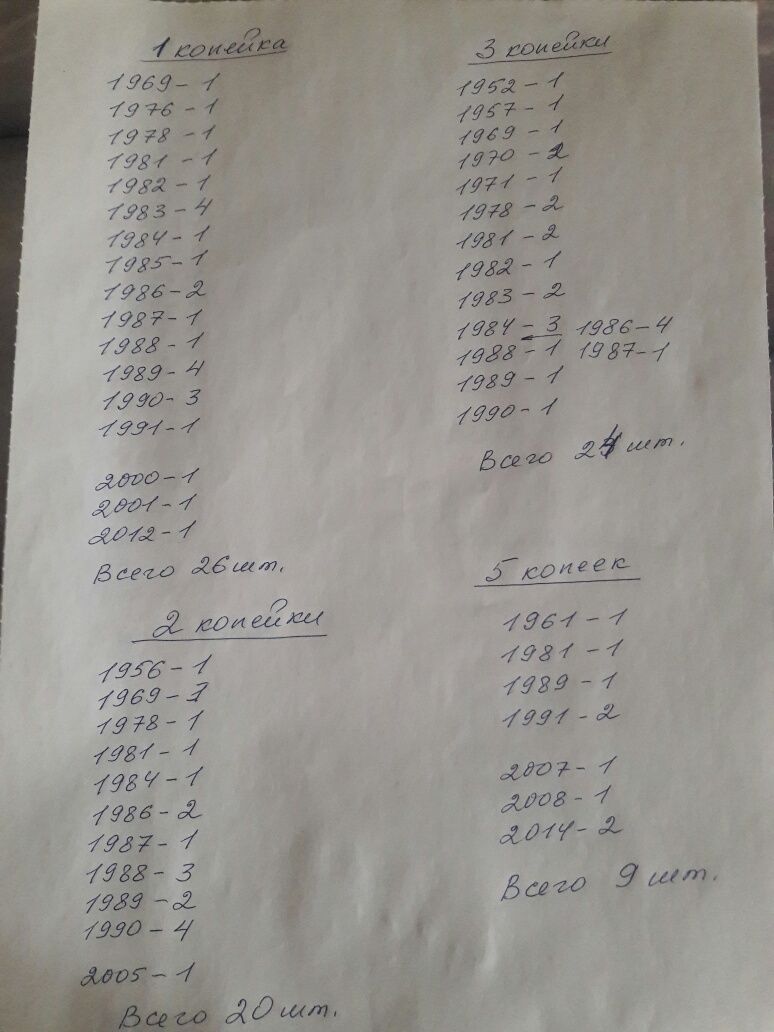 1 копейка
1969 - 1
1976 - 1
1978 - 1
1981 - 1
1982 - 1
1983 - 4
1984 - 1
1985 - 1
1986 - 2
1987 - 1
1988 - 1
1989 - 4
1990 - 3
1991 - 1
2000 - 1
2001 - 1
2012 - 1
Всего 26 шт.
2 копейки
1956 - 1
1969 -
1978 - 1
1981 - 1
1984 - 1
1986 - 2
1987 - 1
1988 - 3
1989 - 2
1990 - 4
2005 - 1
Всего 20 шт.
3 копейки
1952 - 1
1957 - 1
1969 - 1
1970 - 2
1971 - 1
1978 - 2
1981 - 2
1982 - 1
1983 - 2
1984 - 3 1986 - 4
1988 - 1 1987 - 1
1989 - 1
1990 - 1
Всего 24 шт.
5 копеек
1961 - 1
1981 - 1
1989 - 1
1991 - 2
2007 - 1
2008 - 1
2014 - 2
Всего 9 шт.